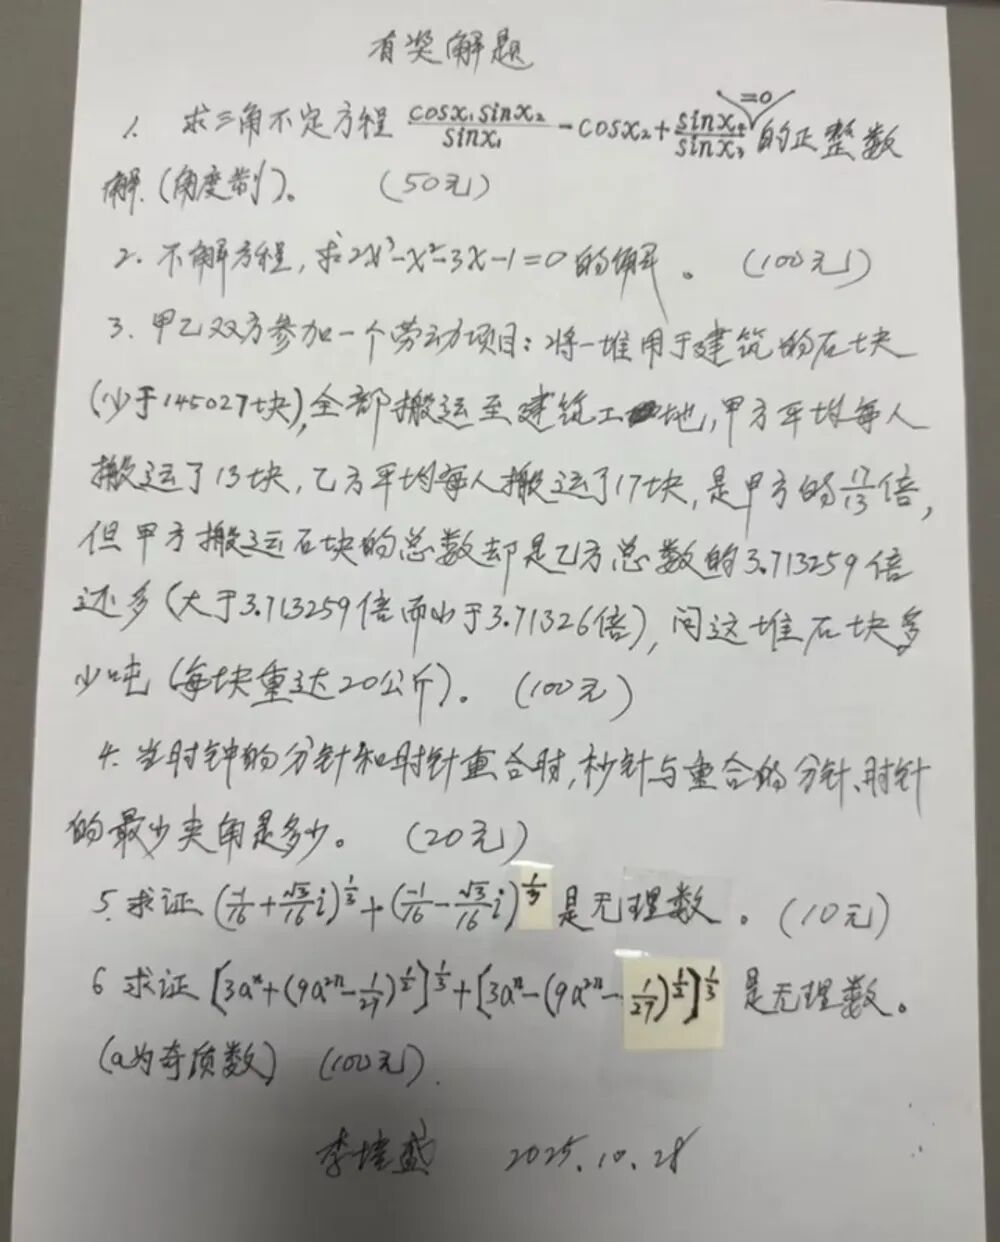 有奖解题
1. 求三角不定方程 \frac{cosx₁sinx₂}{sinx₁} - cosx₂ + \frac{sinx₄}{sinx₃} =0 的正整数
解(角度制)。 (50元)
2. 不解方程,求2x³-x²-3x-1=0的解。 (100元)
3. 甲乙双方参加一个劳动项目:将一堆用于建筑的石块
(少于145027块),全部搬运至建筑工地,甲方平均每人
搬运了13块,乙方平均每人搬运了17块,是甲方的\frac{17}{13}倍,
但甲方搬运石块的总数却是乙方总数的3.713259倍
还多(大于3.713259倍而小于3.71326倍),问这堆石块多
少吨(每块重达20公斤)。 (100元)
4. 当时钟的分针和时针重合时,秒针与重合的分针、时针
的最少夹角是多少。 (20元)
5. 求证 (\frac{-1}{16}+\frac{√3}{16}i)^{\frac{1}{3}}+(\frac{-1}{16}-\frac{√3}{16}i)^{\frac{1}{3}} 是无理数。(10元)
6 求证 [3aⁿ+(9a²ⁿ-\frac{1}{27})^{\frac{1}{2}}]^{\frac{1}{3}}+[3aⁿ-(9a²ⁿ-\frac{1}{27})^{\frac{1}{2}}]^{\frac{1}{3}} 是无理数。
(a为奇质数) (100元).
李培盛 2025.10.28